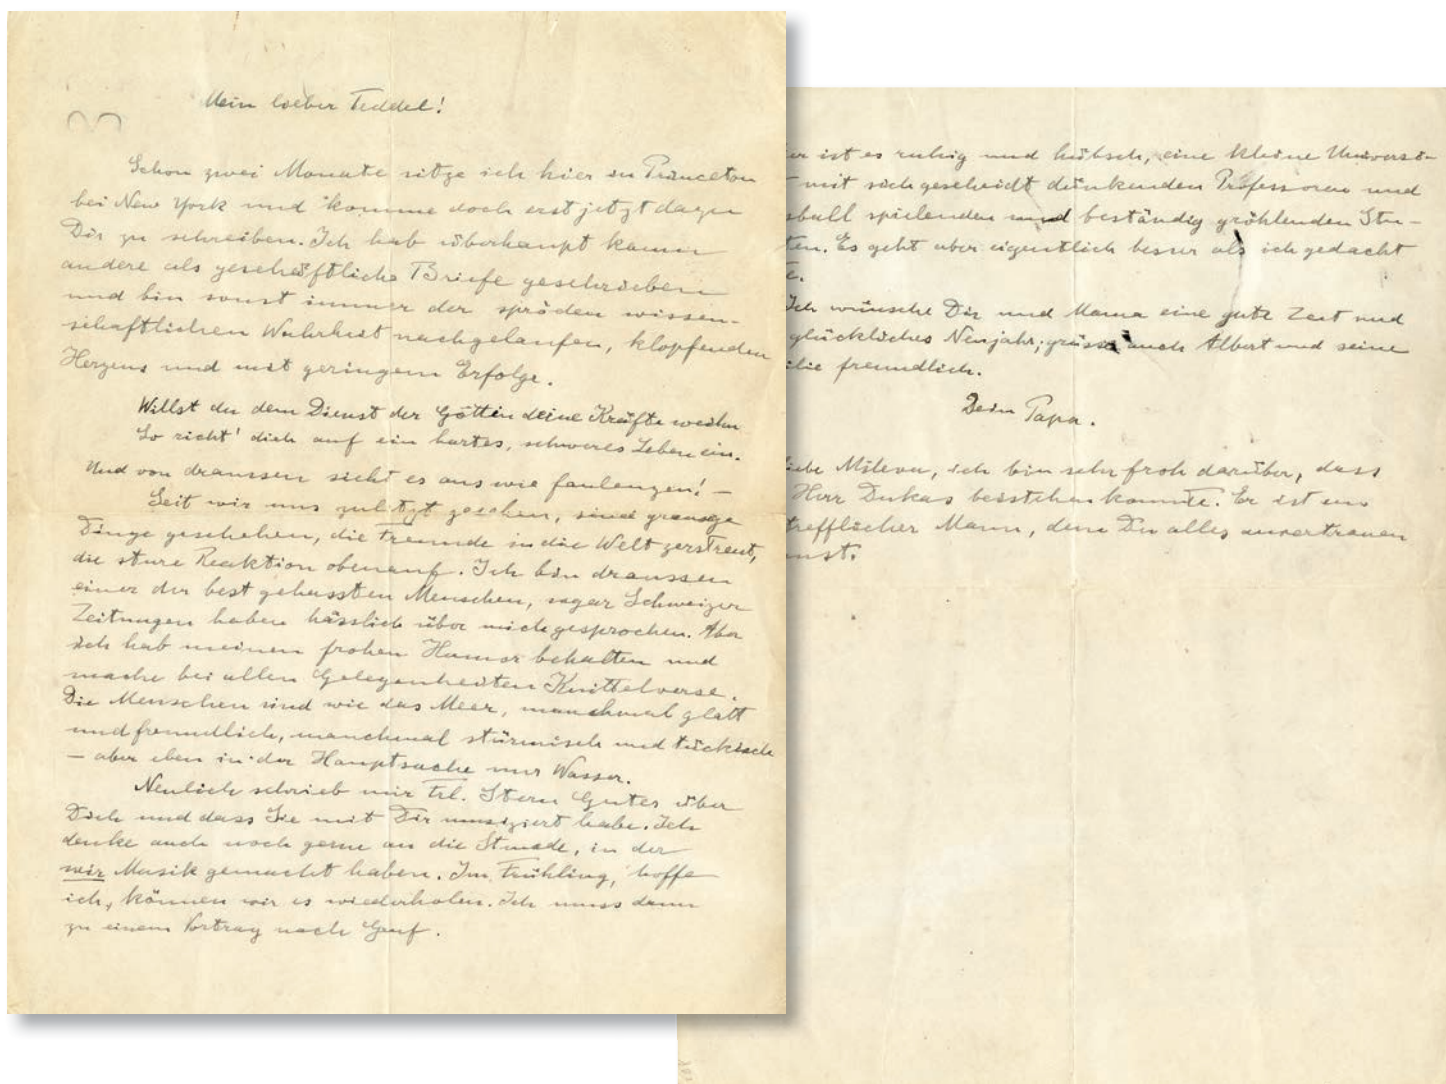 Mein lieber Teddel!
Schon zwei Monate sitze ich hier in Princeton
bei New York und komme doch erst jetzt dazu
Dir zu schreiben. Ich hab überhaupt kaum
andere als geschäftliche Briefe geschrieben
und bin sonst immer der spröden wissen-
schaftlichen Wahrheit nachgelaufen, klopfenden
Herzens und mit geringem Erfolge.
Willst du dem Dienst der Göttin deine Kräfte weihn
So richt' dich auf ein hartes, schweres Leben ein.
Und von draussen sieht es aus wie faulenzen! –
Seit wir uns zuletzt gesehen, sind grausige
Dinge geschehen, die Freunde in die Welt zerstreut,
die sture Reaktion obenauf. Ich bin draussen
einer der best gehassten Menschen, sogar Schweizer
Zeitungen haben hässlich über mich gesprochen. Aber
ich hab meinen frohen Humor behalten und
mache bei allen Gelegenheiten Knittelverse.
Die Menschen sind wie das Meer, manchmal glatt
und freundlich, manchmal stürmisch und tückisch
– aber eben in der Hauptsache nur Wasser.
Neulich schrieb mir Frl. Stern Gutes über
Dich und dass Sie mit Dir musiziert habe. Ich
denke auch noch gerne an die Stunde, in der
wir Musik gemacht haben. Im Frühling, hoffe
ich, können wir es wiederholen. Ich muss dann
zu einem Vortrag nach Genf.
er ist es ruhig und hübsch, eine kleine Universi-
mit sich gescheidt dünkenden Professoren und
sball spielenden und beständig gröhlenden Stu-
ten. Es geht aber eigentlich besser als ich gedacht
e.
Ich wünsche Dir und Mama eine gute Zeit und
glückliches Neujahr; grüsse auch Albert und seine
ilie freundlich.
Dein Papa.
iebe Mileva, ich bin sehr froh darüber, dass
Herr Dukas beistehen konnte. Er ist ein
trefflicher Mann, dem Du alles anvertrauen
nnst.